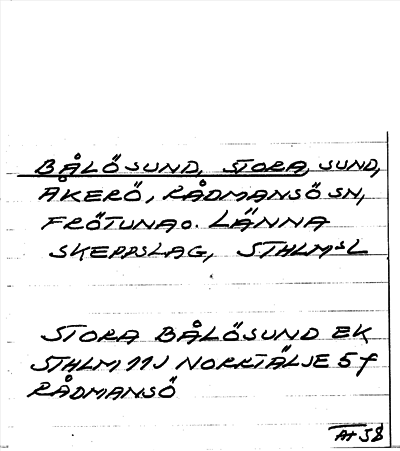 BÅLÖSUND, STORA, SUND,
ÅKERÖ, RÅDMANSÖ SN,
FRÖTUNA O. LÄNNA
SKEPPSLAG, STHLMSL
STORA BÅLÖSUND EK
STHLM 11J NORRTÄLJE 5f
RÅDMANSÖ
At 58